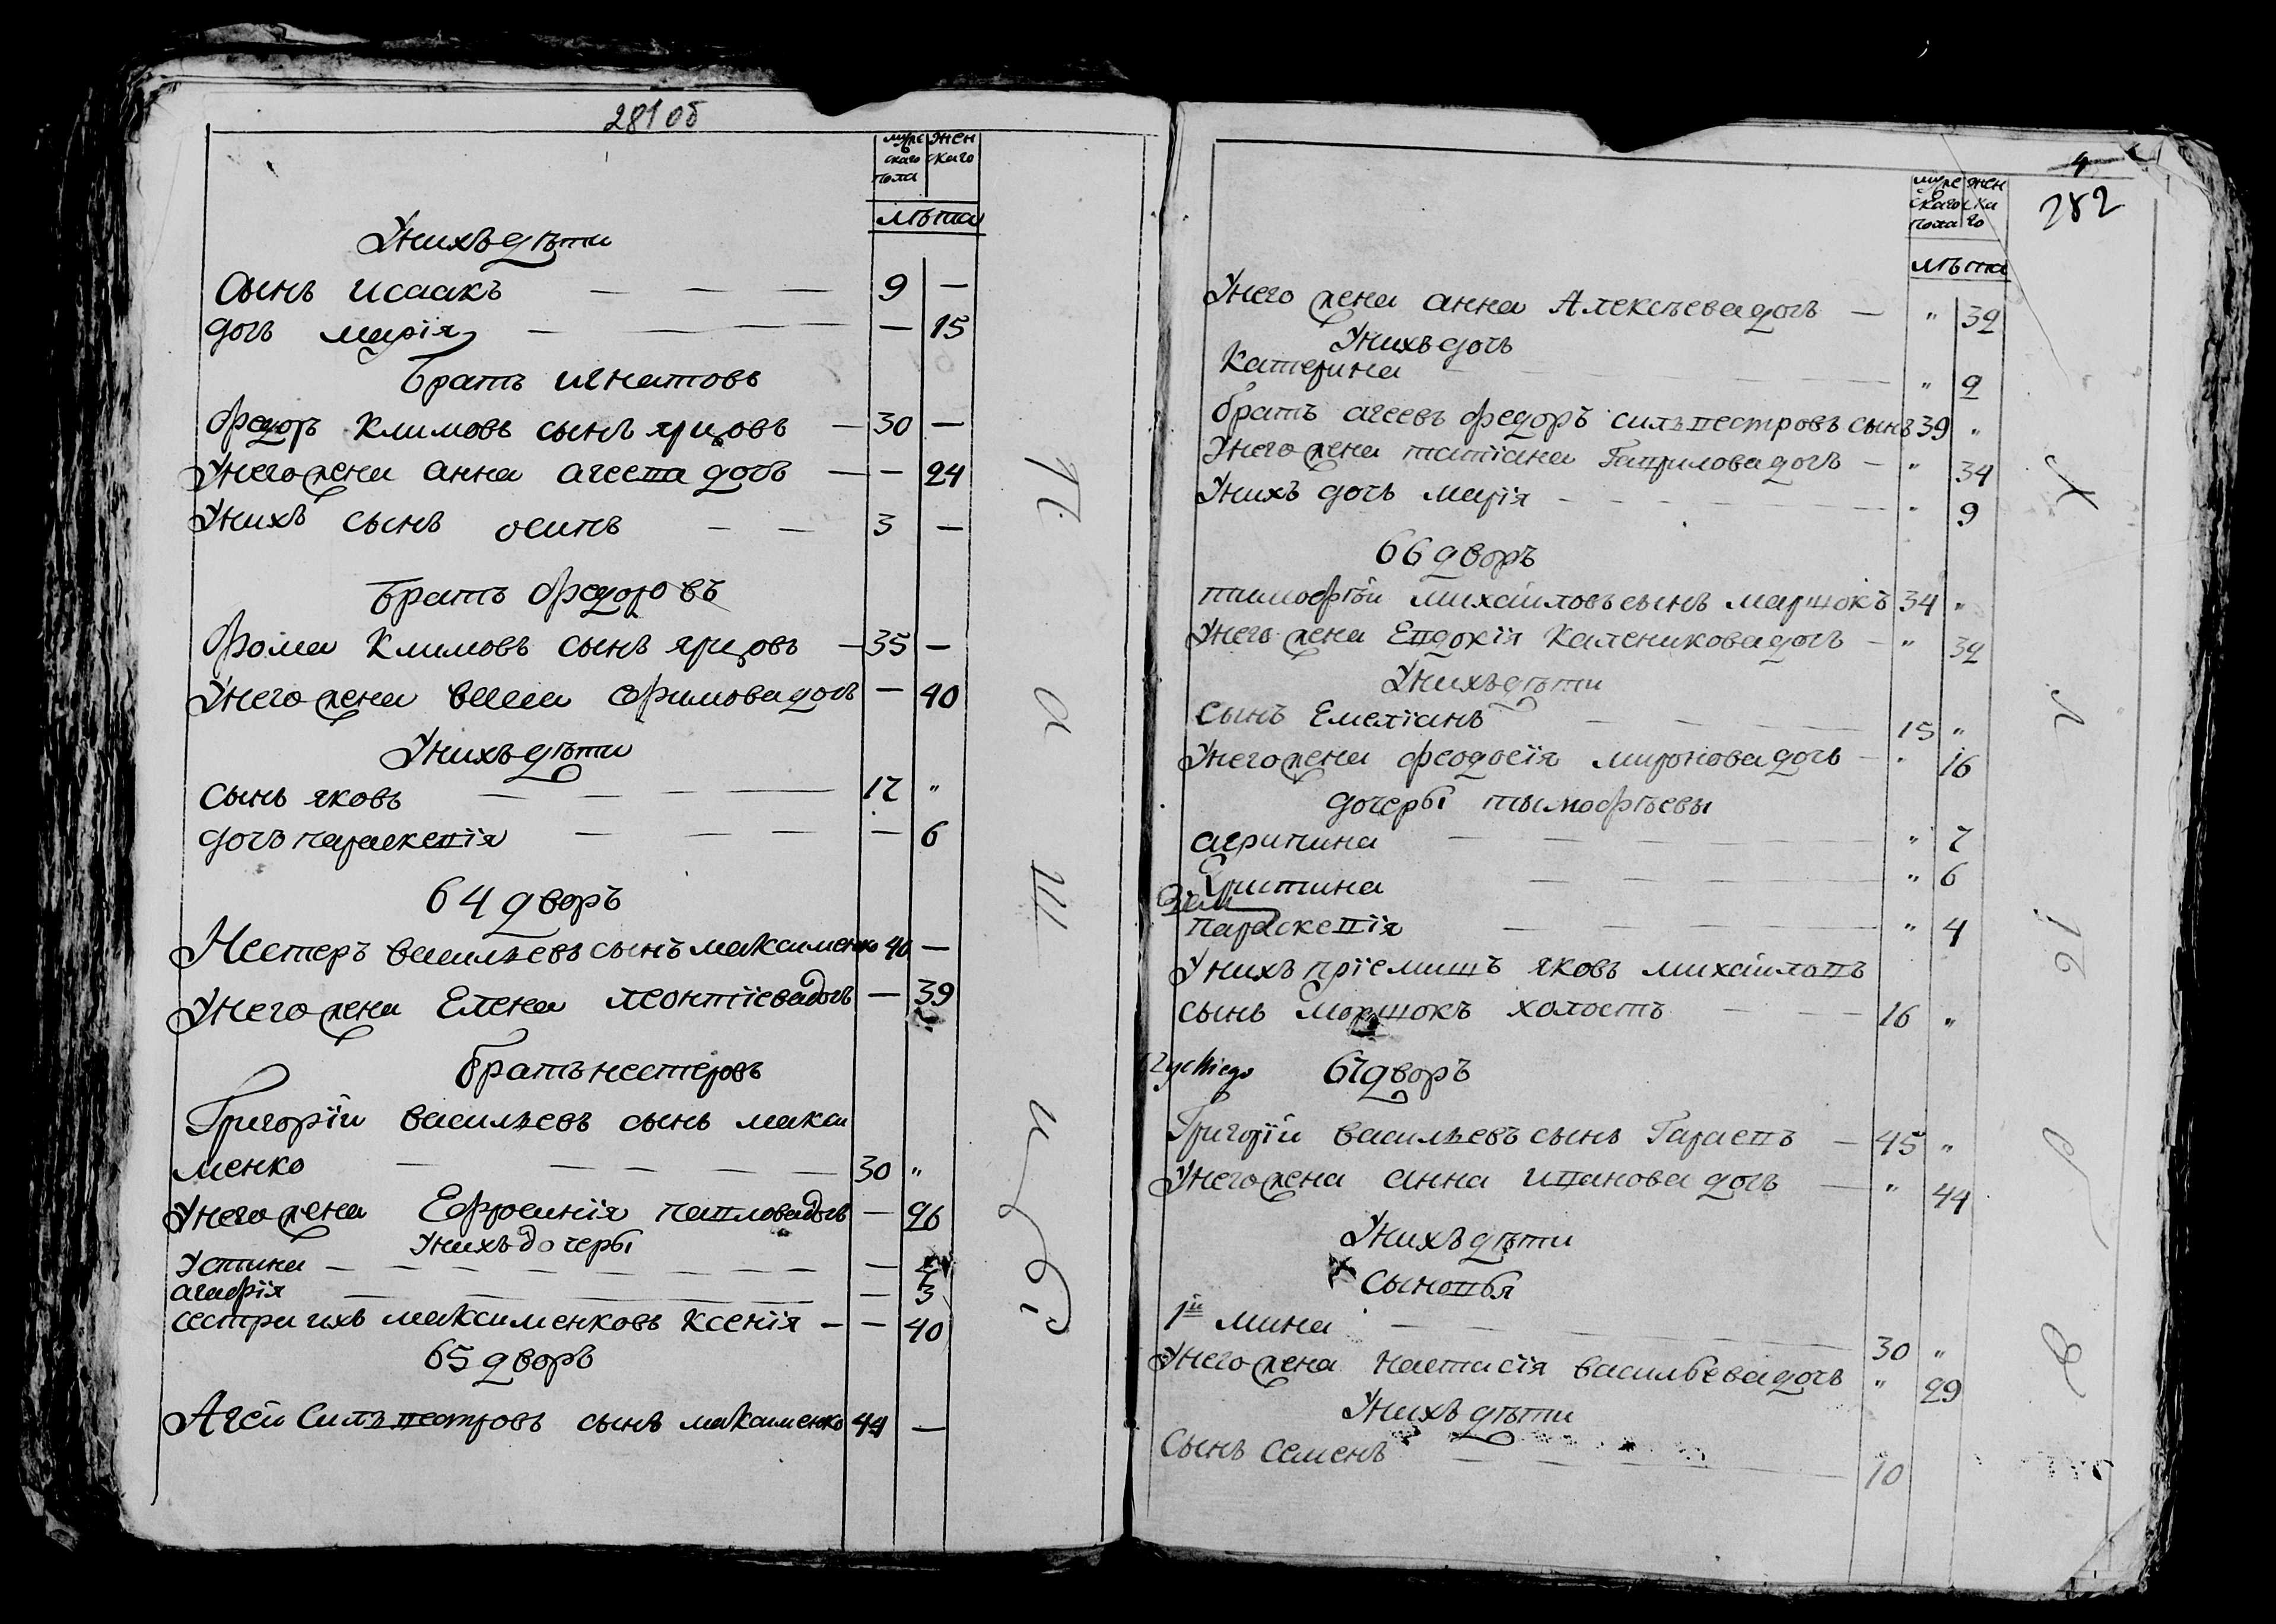 281 об
муже жен
скаго скаго
пола
лѣта
У нихъ дѣти
Сынъ исаакъ — — — 9 —
дочь марія — — — — 15
братъ игнатовъ
федоръ климовъ сынъ ярцовъ — 30 —
У него жена анна агеева дочь — — 24
У нихъ сынъ осипъ — — 3 —
братъ федоровъ
фома климовъ сынъ ярцовъ — 35 —
У него жена васса ефимова дочь — 40
У нихъ дѣти
сынъ яковъ — — — — 12 "
дочь параскевія — — — — 6
64 дворъ
Нестеръ васильевъ сынъ максименко 40 —
У него жена Елена леонтіева дочь — 39
братъ нестеровъ
Григорій васильевъ сынъ макси
менко — — — — — 30 "
У него жена Ефросинія павлова дочь — 26
У нихъ дочерьі
Устина — — — — — — — —
агафія — — — — — 5
сестра ихъ максименковъ ксенія — — 40
65 дворъ
Агей Сильвестровъ сынъ максименко 44 —
П
а
ш
и
4
282
муже жен
скаго ска
пола го
лѣта
У него жена анна Алексѣева дочь — " 32
У нихъ дочь
Катерина — — — " 2
братъ агеевъ федоръ сильвестровъ сынъ 39 "
У него жена татіана Гаврилова дочь — " 34
У нихъ дочь марія — — — " 9
66 дворъ
тимофѣй михайловъ сынъ маршокъ 34 "
У него жена Евдокія Каленикова дочь — " 32
У нихъ дѣти
сынъ Емеліанъ — — — 15 "
У него жена феодосія миронова дочь — " 16
дочерьі тымофѣевы
агрипина — — — — " 7
Христина — — — " 6
параскевія — — — — " 4
У нихъ пріемишъ яковъ михайловъ
сынъ Моршокъ холостъ — — — 16 "
67 дворъ
Григорій васильевъ сынъ Гараевъ — 45 "
У него жена анна иванова дочь — " 44
У нихъ дѣти
сыновья
1й мина — — — — 30 "
У него жена настасія васильева дочь " 29
У нихъ дѣти
Сынъ семенъ — — — — 10